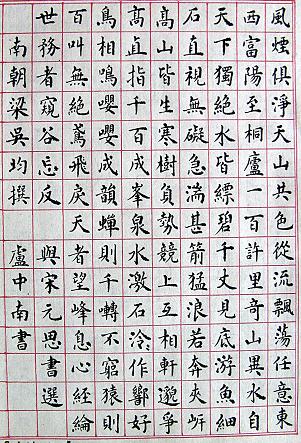 風煙俱淨天山共色從流飄蕩任意東
西富陽至桐廬一百許里奇山異水自
天下獨絕水皆縹碧千丈見底游魚細
石直視無礙急湍甚箭猛浪若奔夾岸
高山皆生寒樹負勢競上互相軒邈爭
高直指千百成峯泉水激石泠〻作響好
鳥相鳴嚶嚶成韻蟬則千囀不窮猿則
百叫無絕鳶飛戾天者望峰息心經綸
世務者窺谷忘反 與宋元思書選
南朝梁吳均撰 盧中南書